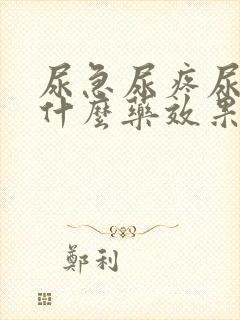 尿急尿疼尿
什麼藥效果
鄭利